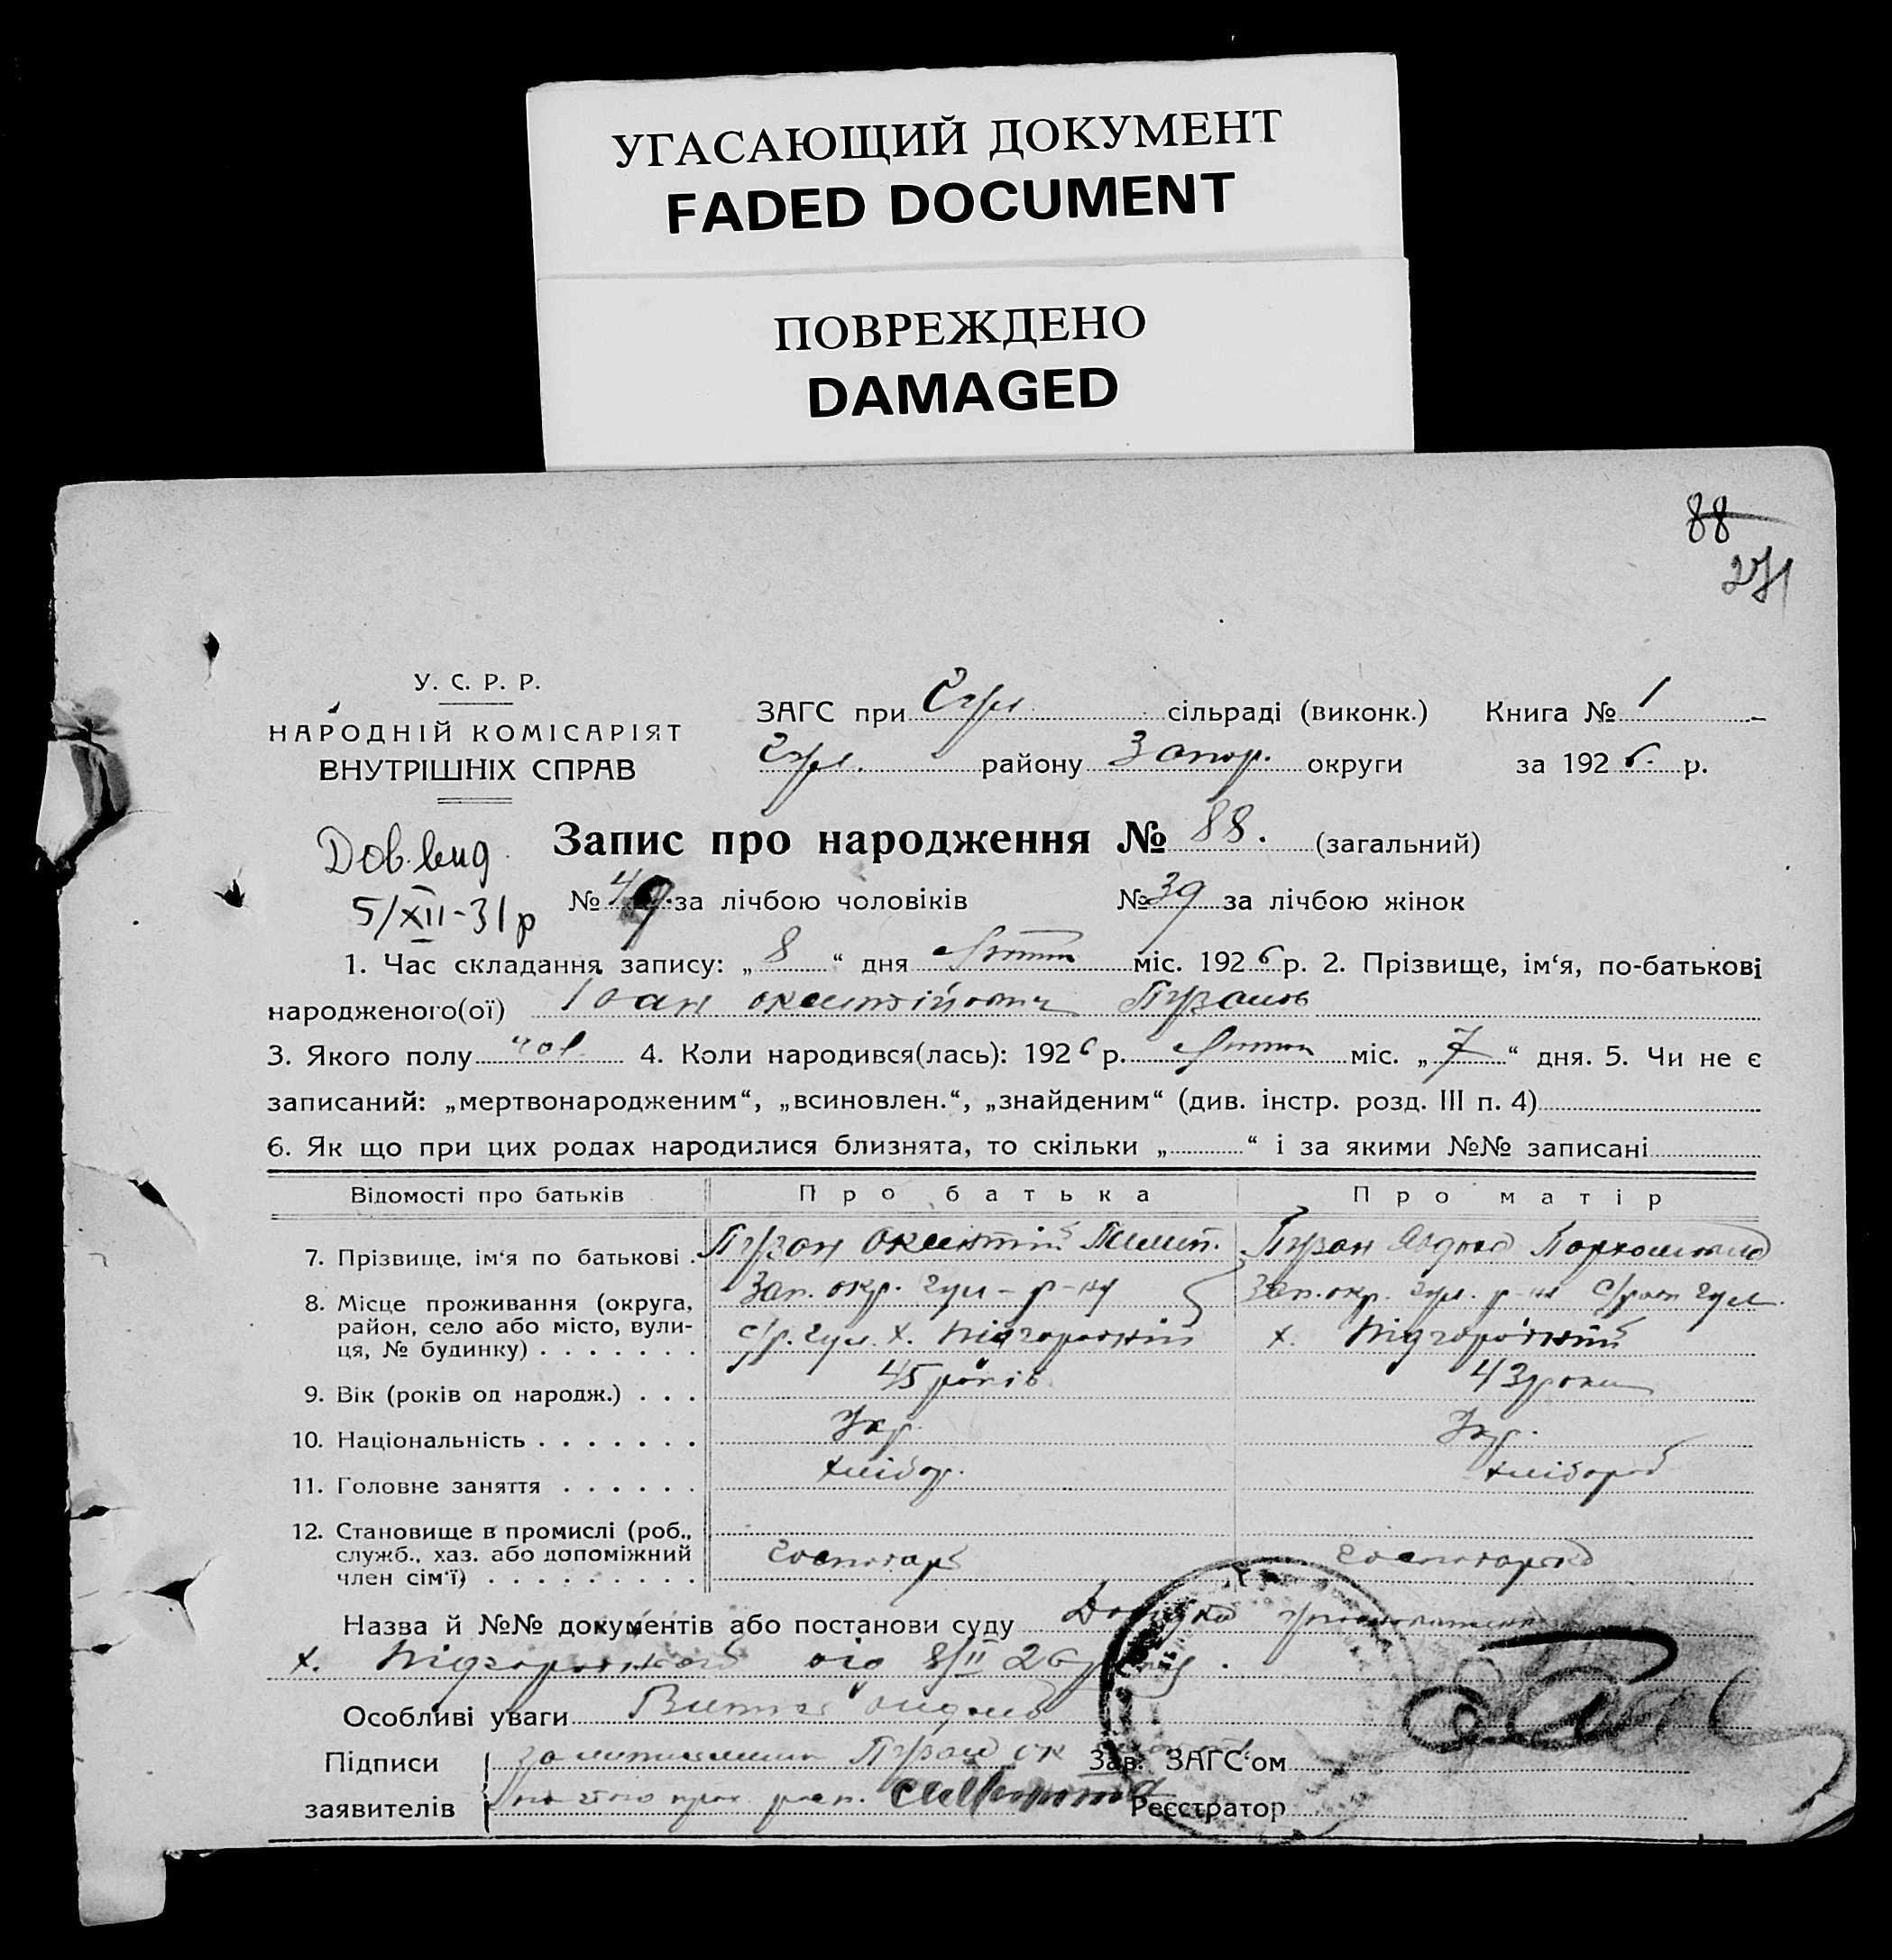 УГАСАЮЩИЙ ДОКУМЕНТ
FADED DOCUMENT
ПОВРЕЖДЕНО
DAMAGED
88
271
У. С. Р. Р.
НАРОДНІЙ КОМІСАРІЯТ
ВНУТРІШНІХ СПРАВ
ЗАГС при Гул. сільраді (виконк.) Книга № 1
Гул. району Запор. округи за 1926. р.
Запис про народження № 88. (загальний)
Дов. вид
5/XII-31 р
№ 49. за лічбою чоловіків № 39 за лічбою жінок
1. Час складання запису: „8“ дня міс. 1926 р. 2. Прізвище, ім‘я, по-батькові
народженого(ої) Іоан
3. Якого полу чол. 4. Коли народився(лась): 1926 р. міс. „7“ дня. 5. Чи не є
записаний: „мертвонародженим“, „всиновлен.“, „знайденим“ (див. інстр. розд. III п. 4)
6. Як що при цих родах народилися близнята, то скільки „ “ і за якими №№ записані
Відомості про батьків Про батька Про матір
7. Прізвище, ім‘я по батькові . Пузан Пилип. Пузан
8. Місце проживання (округа, Зап. окр. Гул-р-ну Зап. окр. Гул. р-ну Гул.
район, село або місто, вули-
ця, № будинку) . . . . . . . с/р. Гул. х. Підгородній х. Підгородній
9. Вік (років од народж.) . . . 45 років 43 роки
10. Національність . . . . . . . Укр. Укр.
11. Головне заняття . . . . . . хлібор. хлібороб
12. Становище в промислі (роб.,
служб., хаз. або допоміжний господарь господарка
член сім‘ї) . . . . . . . . .
Назва й №№ документів або постанови суду Довідка
х. від 8/II 26 р.
Особливі уваги Витяг видано
Підписи Пузан Зав. ЗАГС‘ом
заявителів Реєстратор